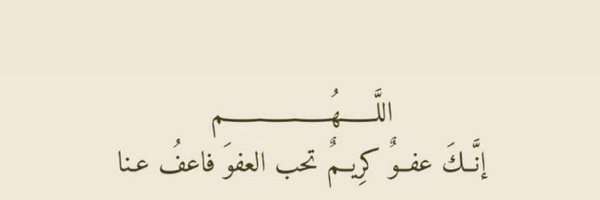 اللَّـــهُـــــــــــم
إنَّـكَ عفـوٌ كرِيـمٌ تحب العفوَ فاعفُ عـنا